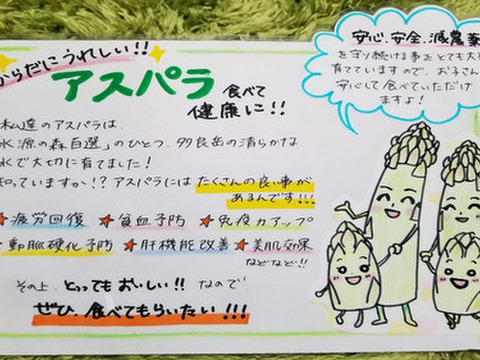 からだにうれしい!!
アスパラ 食べて
健康に!!
私達のアスパラは、
水源の森百選」のひとつ、多良岳の清らかな
水で大切に育てました!
知っていますか!? アスパラには たくさんの良い事が
あるんです!!!
★疲労回復 ★貧血予防 ★免疫力アップ
動脈硬化予防 ★肝機能改善 ★美肌効果
などなど!!
その上 とってもおいしい!! なので
ぜひ、食べてもらいたい!!!
安心、安全、減農薬
を守り続ける事を とても大
育てていますので、お子さん
安心して食べていただけ
ますよ!